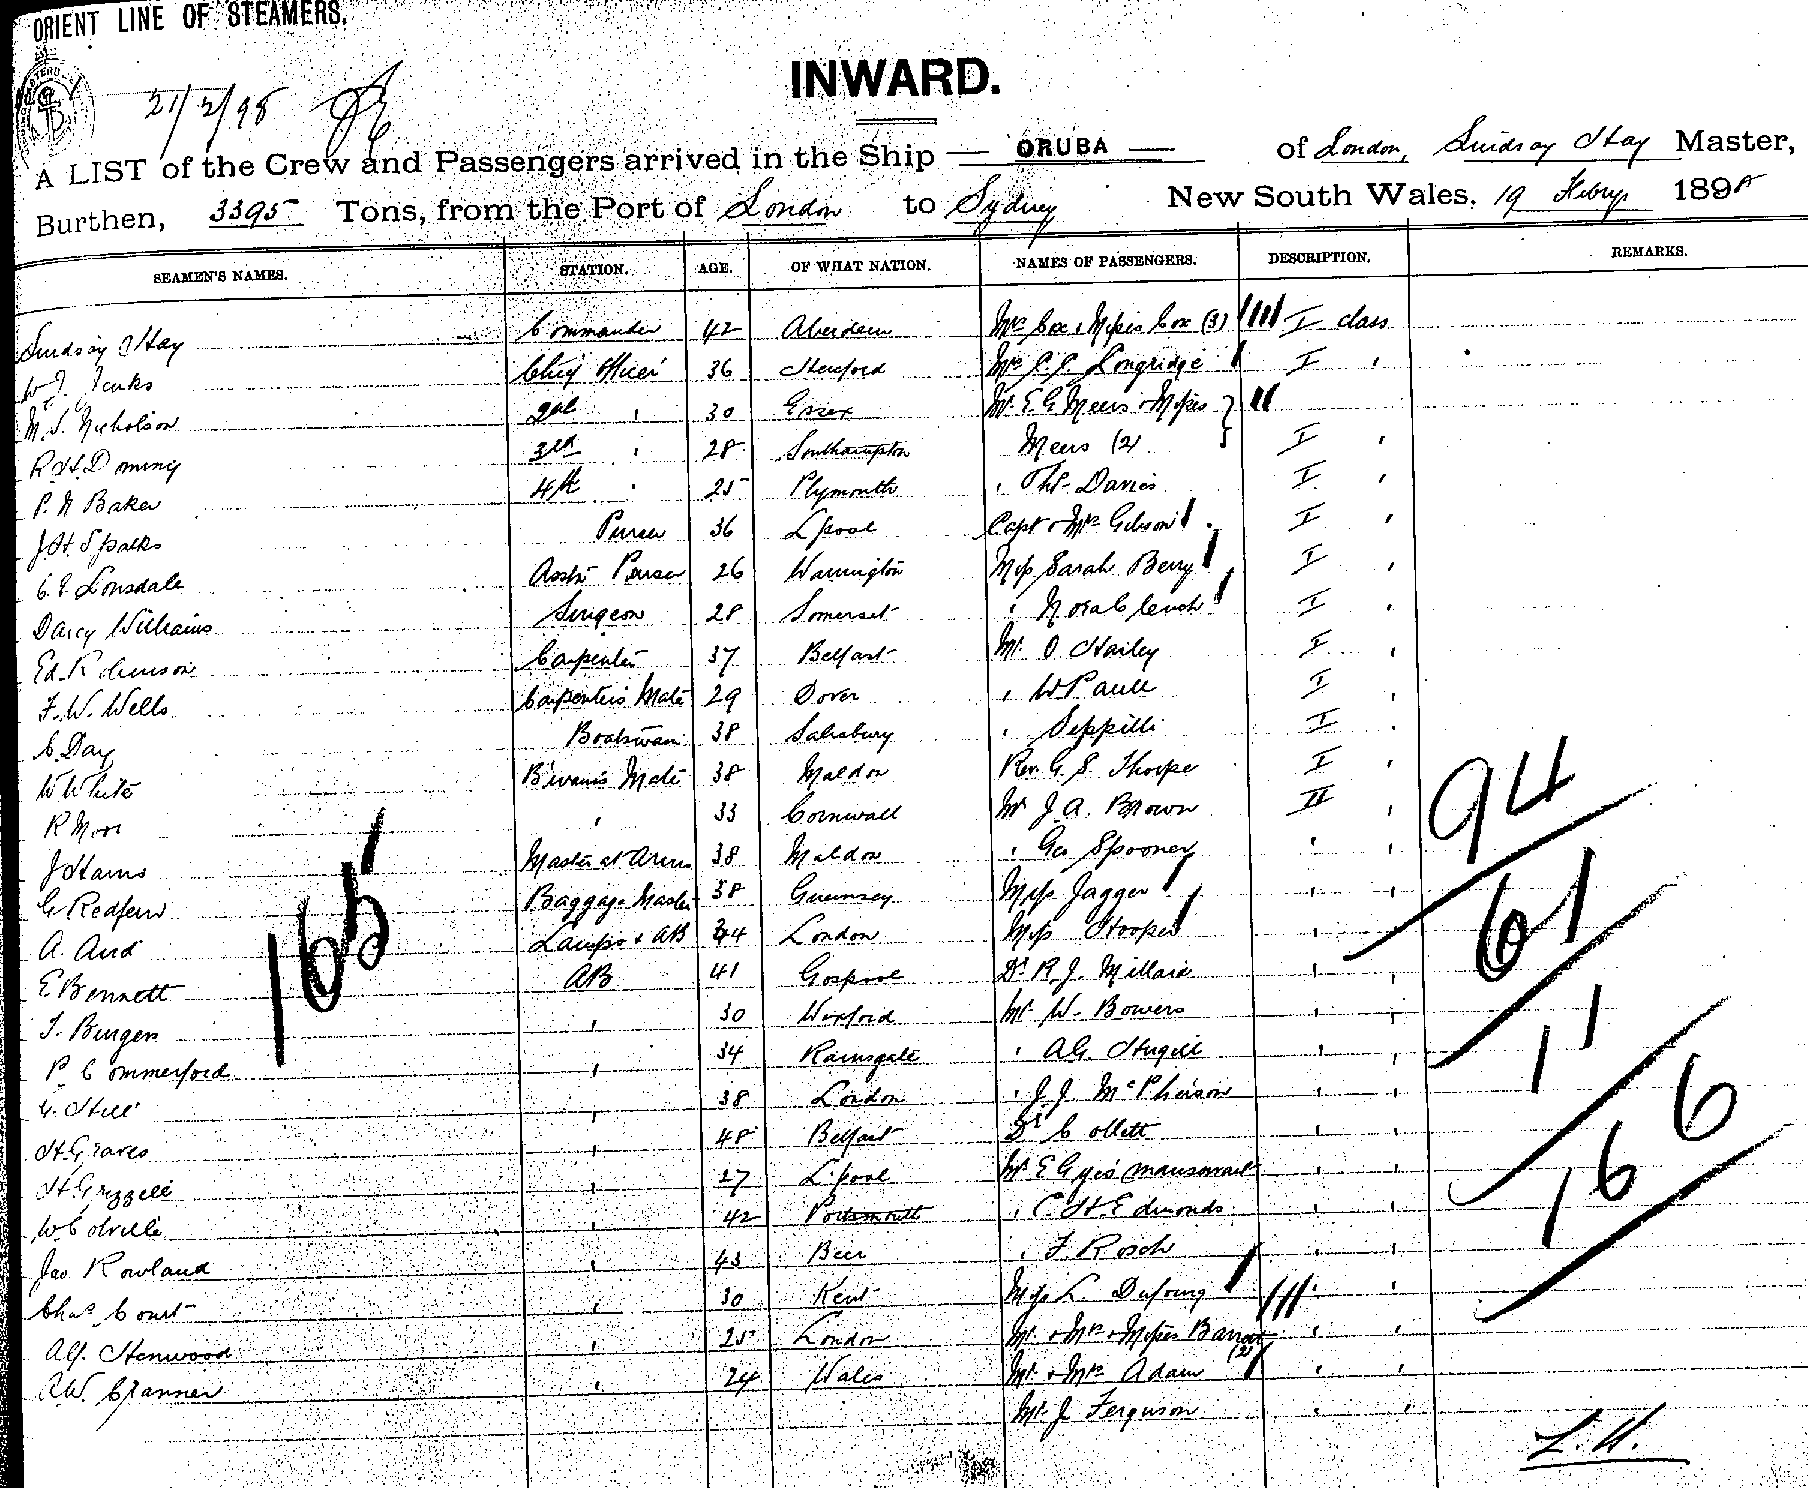 ORIENT LINE OF STEAMERS.
INWARD.
21/2/98
A LIST of the Crew and Passengers arrived in the Ship — ORUBA — of London, Lindsay Hay Master,
Burthen, 3395 Tons, from the Port of London to Sydney New South Wales, 19 Febry 1898
SEAMEN'S NAMES. STATION. AGE. OF WHAT NATION. NAMES OF PASSENGERS. DESCRIPTION. REMARKS.
Lindsay Hay Commander 42 Aberdeen Mrs Cox, Misses Cox (3) I class
W.J. Jenks Chief Officer 36 Hereford Longridge I "
M.S. Nicholson 2nd " 30 Essex Mr E G Meers & Misses
R H Doming 3rd " 28 Southampton Meers (2) I "
P. N Baker 4th " 25 Plymouth " Thos Davies I "
J H Sparks Purser 36 Lpool Capt & Mrs Gibson I "
C. E Lonsdale Asst Purser 26 Warrington Miss Sarah Berry I "
Darcy Williams Surgeon 28 Somerset " Nora Clench I "
Ed. Robinson Carpenter 37 Belfast Mr O Hailey I "
F. W. Wells Carpenters Mate 29 Dover " W Paull I "
C. Day Boatswain 38 Salisbury " Seppilli I "
W White B'swains Mate 38 Maldon Rev G. S Thorpe I "
R Moor " 33 Cornwall Mr J. A. Brown II "
J Hams Master at Arms 38 Maldon " Geo Spooner " "
G Redfern Baggage Master 38 Guernsey Miss Jagger " "
A. Aud Lamps & AB 44 London Miss Hooper " "
E Bennett AB 41 Gosport Dr R. J. Millard " "
T. Burgess " 30 Wexford Mr W. Bowers " "
P Commerford " 34 Ramsgate " A G Hugill " "
G. Hill " 38 London " J. J. McPherson " "
H. Graves " 48 Belfast Dr Collett " "
H. Grizzell " 27 L'pool Mr E " "
W Colville " 42 Portsmouth " C H Edmonds " "
Jas Rowland " 43 Beer " F. Rosch " "
Chas Court " 30 Kent Miss L. Dufoung " "
Alf. Henwood " 25 London Mr & Mrs & Misses Barrat (2) " "
A.W. Cranner " 24 Wales Mr & Mrs Adam " "
Mr J Ferguson " "
165
94
61
11
166
L. H.